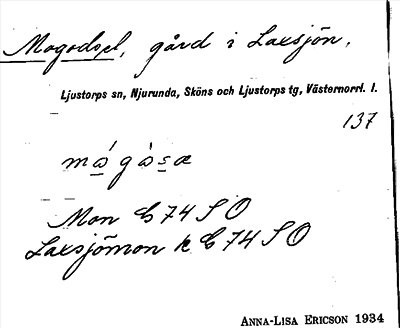 Mogodsel, gård i Laxsjön.
Ljustorps sn, Njurunda, Sköns och Ljustorps tg, Västernorrl. l.
137
Mon G 74 S O
Laxsjömon k G 74 S O
ANNA-LISA ERICSON 1934